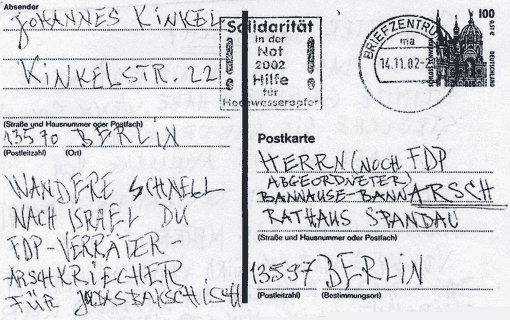 Absender
JOHANNES KINKEL
KINKELSTR. 22
(Straße und Hausnummer oder Postfach)
13570 BERLIN
(Postleitzahl) (Ort)
WANDERE SCHNELL
NACH ISRAEL DU
FDP-VERRÄTER-
ARSCHKRIECHER
FÜR
Solidarität
in der
Not
2002
Hilfe
für
Hochwasseropfer
BRIEFZENTRUM
ma
14.11.02-2
100
0,51 €
DEUTSCHLAND
Postkarte
HERRN (NOCH FDP
ABGEORDNETER)
BANNAUSE-BANNARSCH
RATHAUS SPANDAU
(Straße und Hausnummer oder Postfach)
13597 BERLIN
(Postleitzahl) (Bestimmungsort)